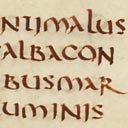 NTIMALUS
ALBACON
BUSMAR
UMINIS